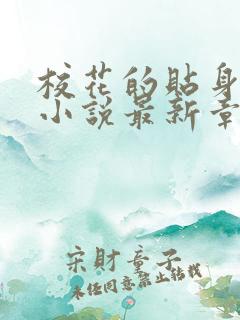 校花的貼身
小說最新章
宋財童子
未经同意禁止转载